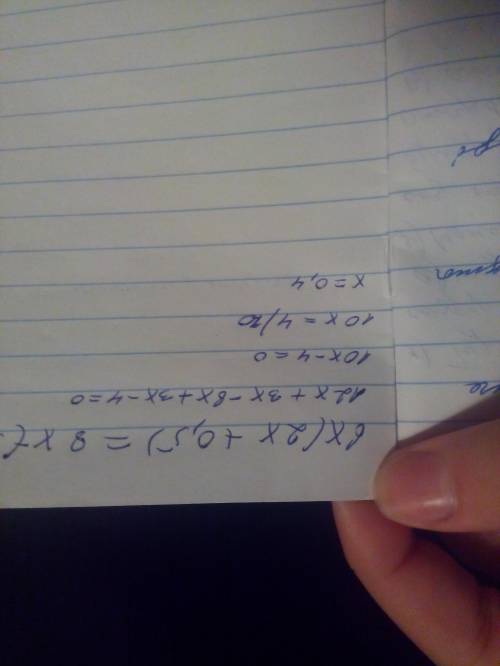 6x(2x+0,5)=8x(
12x+3x-8x+3x-4=0
10x-4=0
10x=4/10
x=0,4